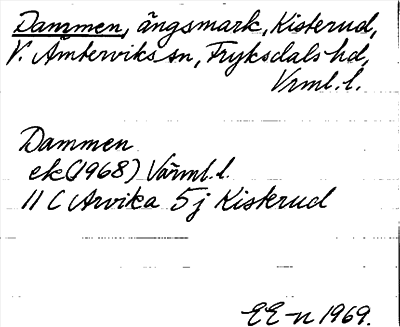 Dammen, ängsmark, Kisterud,
V. Ämterviks sn, Fryksdals hd,
Vrml. l.
Dammen
ek (1968) Värml. l.
11 C Arvika 5j Kisterud
EE-n 1969.